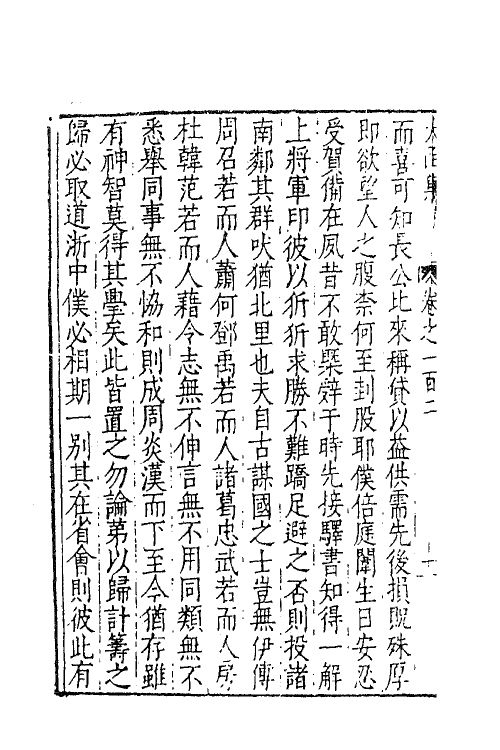 太函集 卷之一百二
而喜可知長公比來稱貸以益供需先後損貺殊厚
即欲望人之腹柰何至刲股耶僕倍庭闈生日安忍
受賀備在夙昔不敢槩辭于時先接驛書知得一解
上將軍印彼以狾狾求勝不難蹻足避之否則投諸
南鄰其群吠猶北里也夫自古謀國之士豈無伊傅
周召若而人蕭何鄧禹若而人諸葛忠武若而人房
杜韓范若而人藉令志無不伸言無不用同類無不
悉舉同事無不恊和則成周炎漢而下至今猶存雖
有神智莫得其學矣此皆置之勿論苐以歸計籌之
歸必取道浙中僕必相期一別其在省會則彼此有